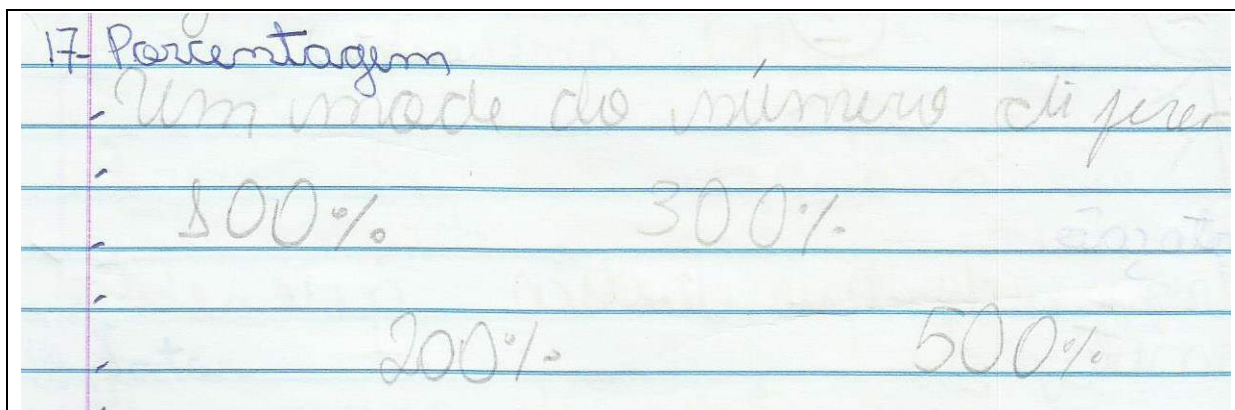 17- Porcentagem
Um mode do número diferen
100% 300%
200% 500%